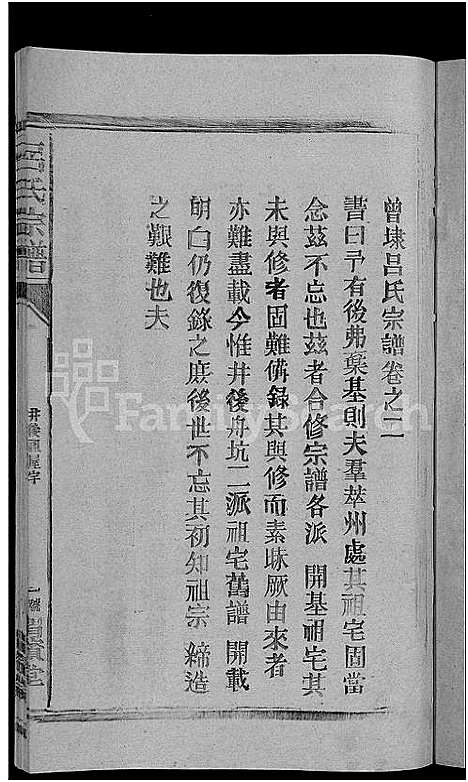 曾埭呂氏宗譜卷之二
書曰予有後弗棄基則夫羣萃州處其祖宅固當
念茲不忘也茲者合修宗譜各派 開基祖宅其
未與修者固難備錄其與修而素昧厥由來者
亦難盡載今惟井後舟坑二派祖宅舊譜 開載
明白仍復錄之庶後世不忘其初知祖宗 締造
之艱難也夫
呂氏宗譜
FamilySearch